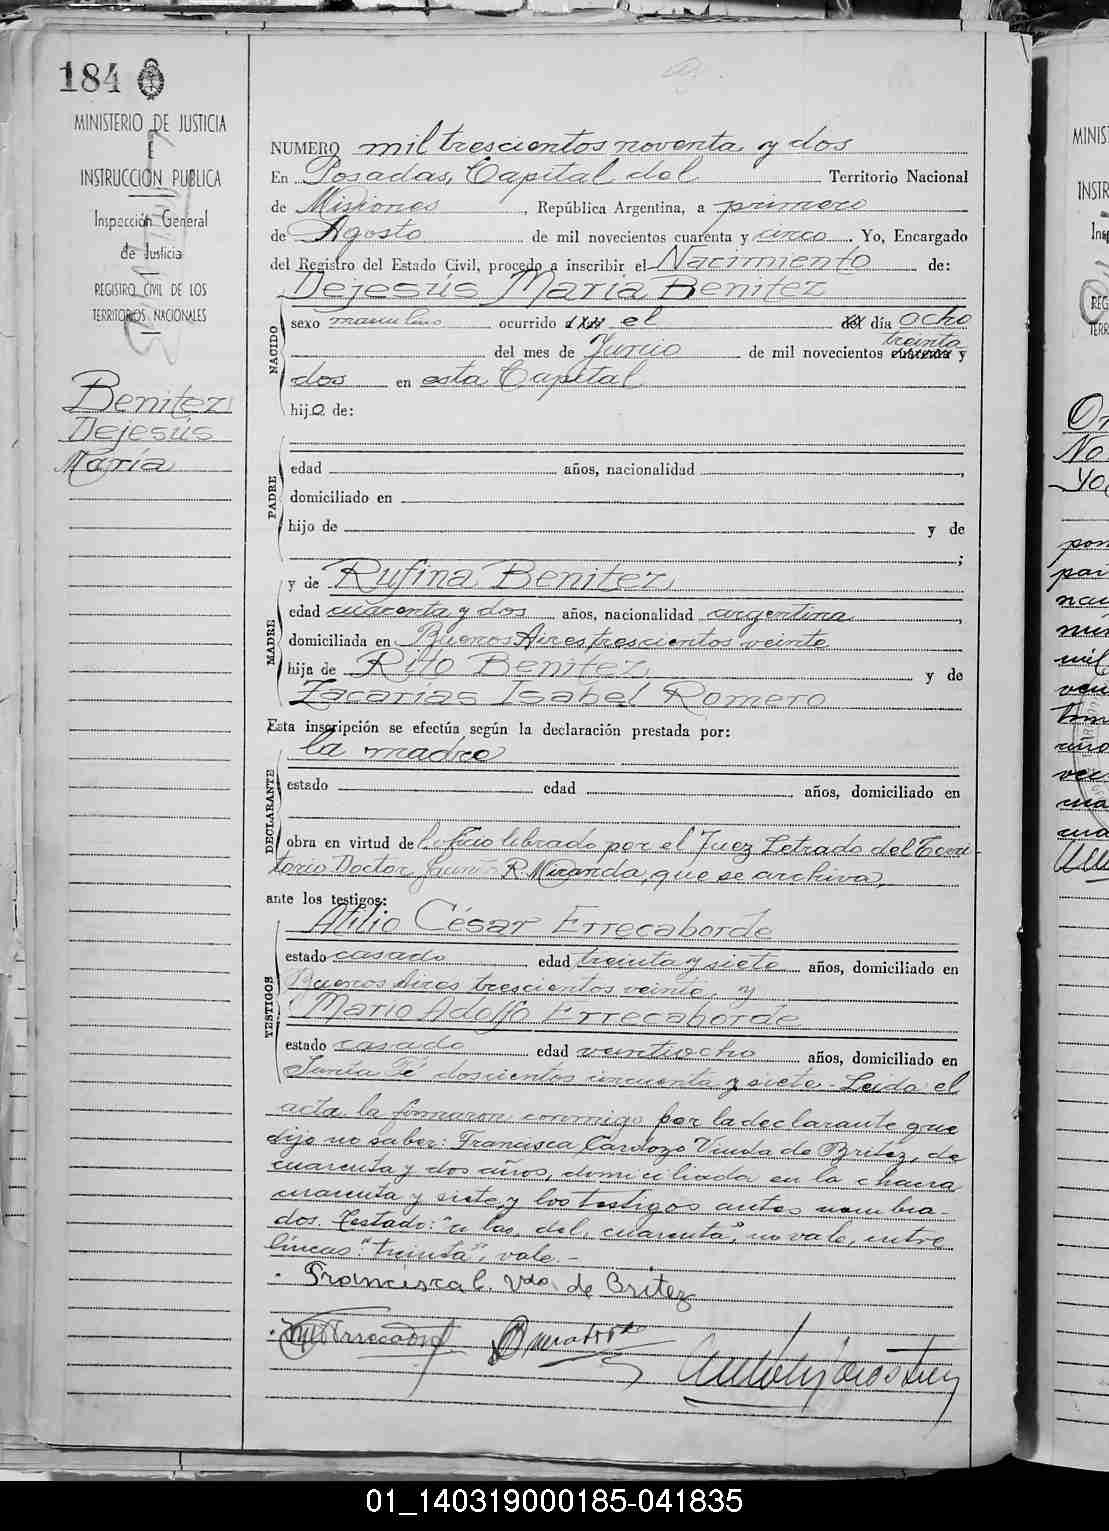 184
MINISTERIO DE JUSTICIA
E
INSTRUCCIÓN PUBLICA
Inspección General
de Justicia
REGISTRO CIVIL DE LOS
TERRITORIOS NACIONALES
Benitez
Dejesús
María
NUMERO mil trescientos noventa y dos
En Posadas, Capital del Territorio Nacional
de Misiones, República Argentina, a primero
de Agosto de mil novecientos cuarenta y cinco. Yo, Encargado
del Registro del Estado Civil, procedo a inscribir el Nacimiento de:
Dejesús María Benitez
NACIDO
sexo masculino ocurrido el del día ocho
treinta
del mes de Junio de mil novecientos cuarenta y
dos en esta Capital
hijo de:
PADRE
edad años, nacionalidad ,
domiciliado en
hijo de y de
;
MADRE
y de Rufina Benitez,
edad cuarenta y dos años, nacionalidad argentina,
domiciliada en Buenos Aires trescientos veinte
hija de Rito Benitez, y de
Zacarías Isabel Romero
Esta inscripción se efectúa según la declaración prestada por:
la madre
DECLARANTE
estado edad años, domiciliado en
obra en virtud del oficio librado por el Juez Letrado del Terri-
torio Doctor R. Miranda, que se archiva,
ante los testigos:
TESTIGOS
Atilio César Errecaborde
estado casado edad treinta y siete años, domiciliado en
Buenos Aires trescientos veinte, y
Mario Adolfo Errecaborde
estado casado edad veintiocho años, domiciliado en
Santa Fé doscientos cincuenta y siete - Leida el
acta, la firmaron conmigo por la declarante que
dijo no saber: Francisca Cardozo Viuda de Britez, de
cuarenta y dos años, domiciliada en la chacra
cuarenta y siete y los testigos antes nombra-
dos. Testado: "a las, del, cuarenta", no vale, entre
líneas: "treinta", vale.-
Francisca C. Vda de Britez
MINIS
INSTR
Insp
REG
TERR
01_140319000185-041835